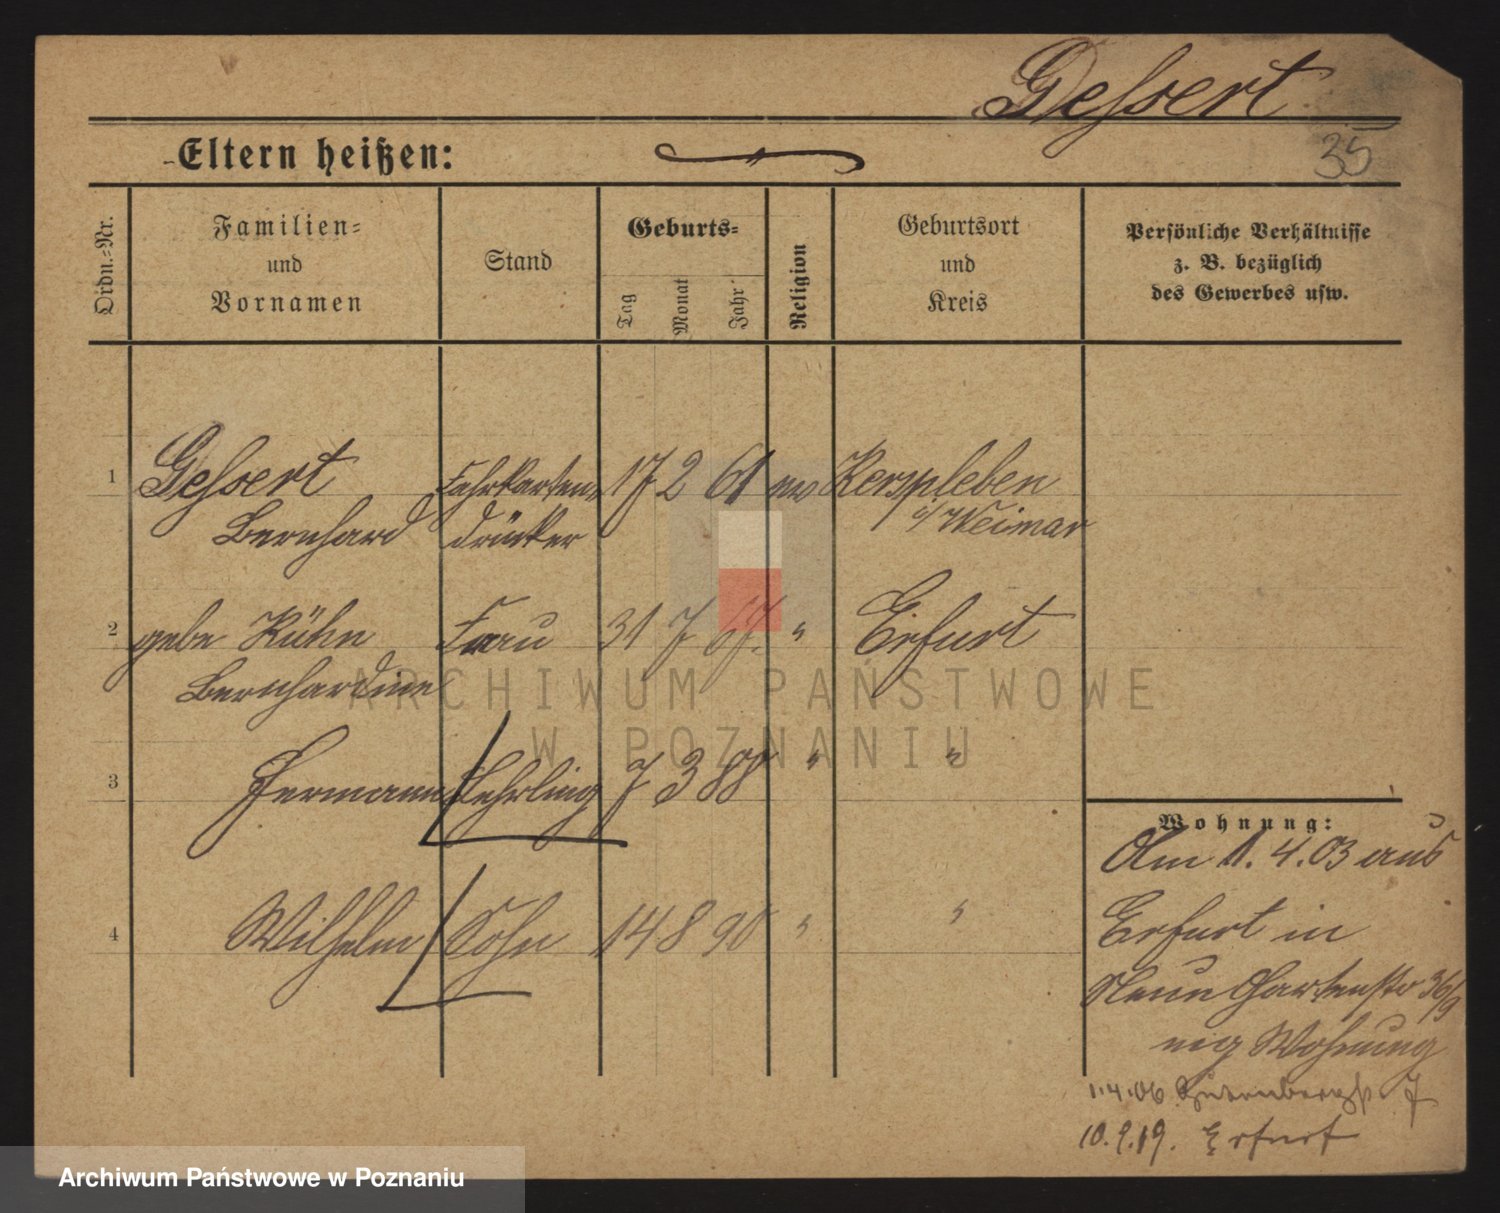 Gessert
35
Eltern heißen:
Ordn.-Nr.
Familien-
und
Vornamen
Stand
Geburts-
Tag
Monat
Jahr
Religion
Geburtsort
und
Kreis
Persönliche Verhältnisse
z. B. bezüglich
des Gewerbes usw.
1 Gessert Fahrkarten- 17 2 61 ev Kerspleben
Bernhard drucker a/ Weimar
2 gebe Kühn Frau 31 7 67. " Erfurt
Bernhardine
3 Hermann Lehrling 7 3 88 " "
4 Wilhelm Sohn 14 8 90 " "
Wohnung:
Am 1. 4. 03 aus
Erfurt in
Neue Gartenstr 36/9
eig Wohnung
1.4.06 7
10.9.19. Erfurt
ARCHIWUM PAŃSTWOWE
W POZNANIU
Archiwum Państwowe w Poznaniu